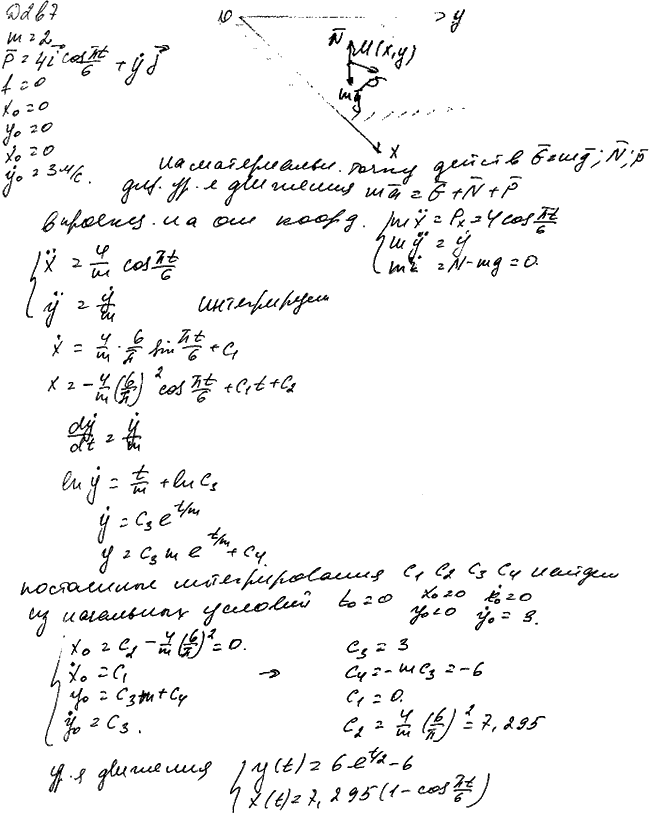 D2В7
m = 2
P̄ = 4i⃗ cos πt/6 + ẏ j⃗
f = 0
x₀ = 0
y₀ = 0
ẋ₀ = 0
ẏ₀ = 3 м/с.
O y
N̄ M(x,y)
mḡ
x
на материальн. точку действ Ḡ = mḡ; N̄; p̄
диф. ур. я движения mā = Ḡ + N̄ + P̄
в проекц. на оси коорд. { mẍ = Pₓ = 4 cos πt/6
mÿ = ẏ
mz̈ = N - mg = 0.
{ ẍ = 4/m cos πt/6
ÿ = ẏ/m интегрируем
ẋ = 4/m · 6/π sin πt/6 + C₁
x = - 4/m (6/π)² cos πt/6 + C₁t + C₂
dẏ/dt = ẏ/m
ln ẏ = t/m + ln C₃
ẏ = C₃ e^{t/m}
y = C₃ m e^{t/m} + C₄
постоянные интегрирования C₁ C₂ C₃ C₄ найдем
из начальных условий t₀ = 0 x₀ = 0 ẋ₀ = 0
y₀ = 0 ẏ₀ = 3.
{ x₀ = C₂ - 4/m (6/π)² = 0. C₃ = 3
ẋ₀ = C₁ → C₄ = - mC₃ = -6
y₀ = C₃m + C₄ C₁ = 0.
ẏ₀ = C₃. C₂ = 4/m (6/π)² = 7,295
ур. я движения { y(t) = 6 e^{t/2} - 6
x(t) = 7,295 (1 - cos πt/6)